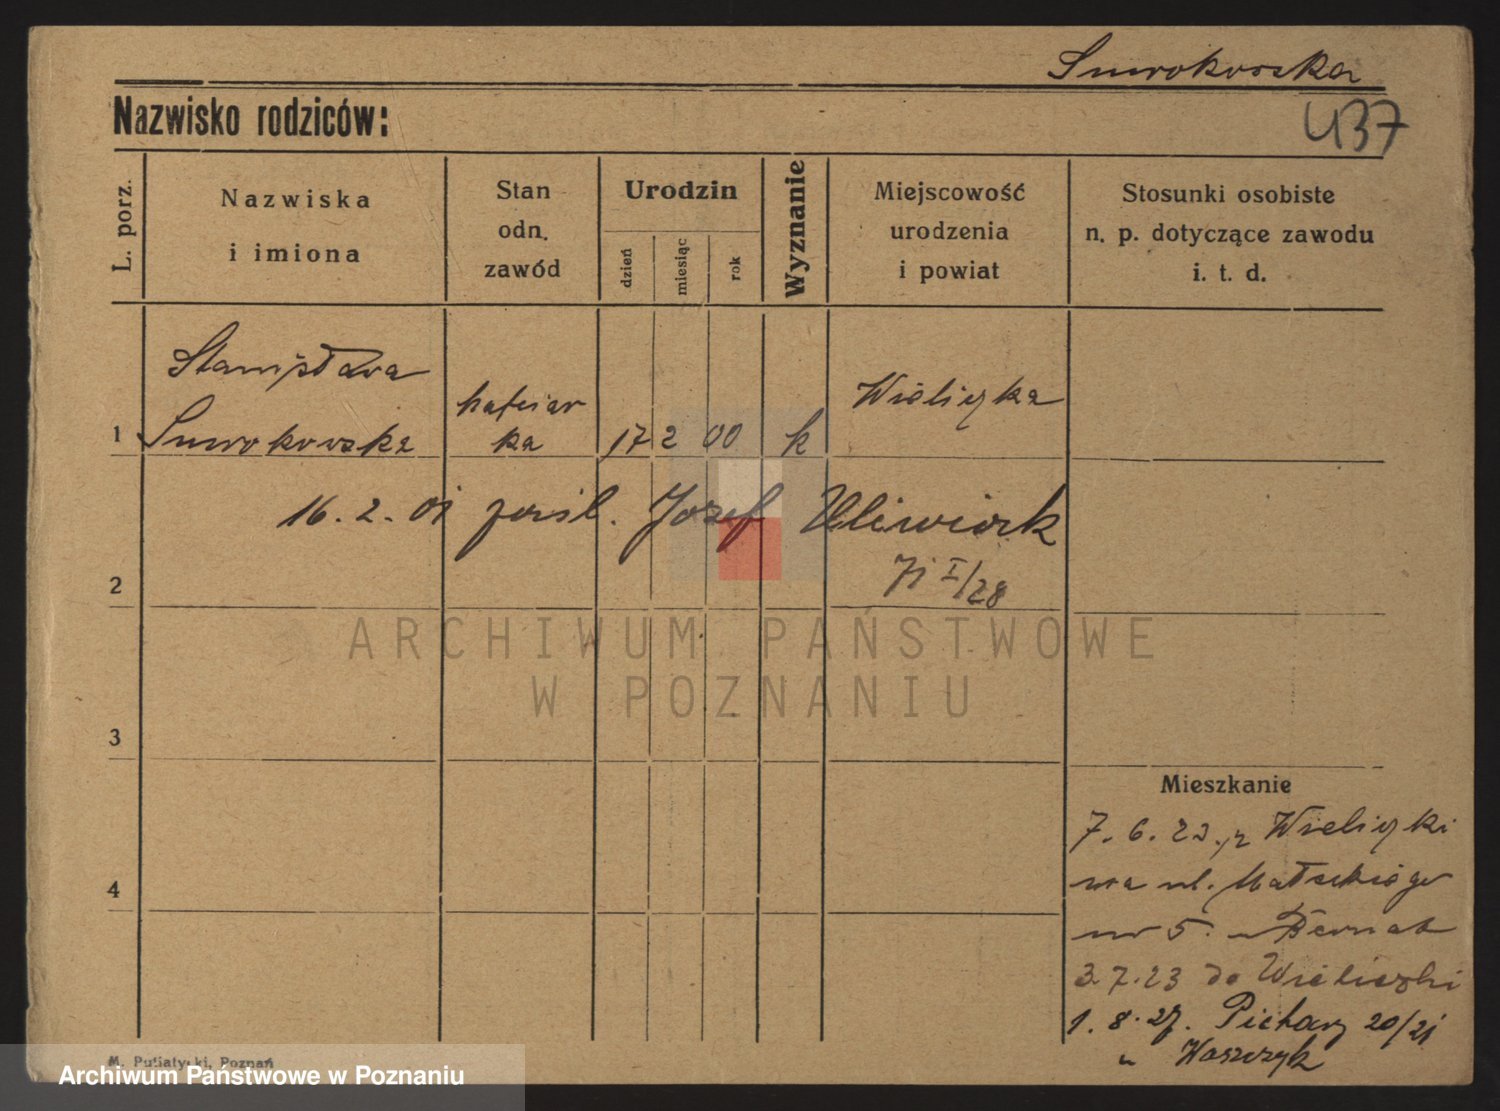 Smrokowska
437
Nazwisko rodziców:
L. porz.
Nazwiska
i imiona
Stan
odn.
zawód
Urodzin
dzień
miesiąc
rok
Wyznanie
Miejscowość
urodzenia
i powiat
Stosunki osobiste
n. p. dotyczące zawodu
i. t. d.
Stanisława
1 Smrokowska hafciar
ka 17 2 00 k Wieliczka
16. 2. 01 Józef
I/28
2
ARCHIWUM PAŃSTWOWE
W POZNANIU
3
Mieszkanie
7. 6. 23. z Wieliczki
na ul. Małeckiego
4
nr 5. u Bernat
3.7.23 do Wieliczki
1. 8. 27. Piekary 20/21
u Waszczyk
M. Putiatycki, Poznań
Archiwum Państwowe w Poznaniu